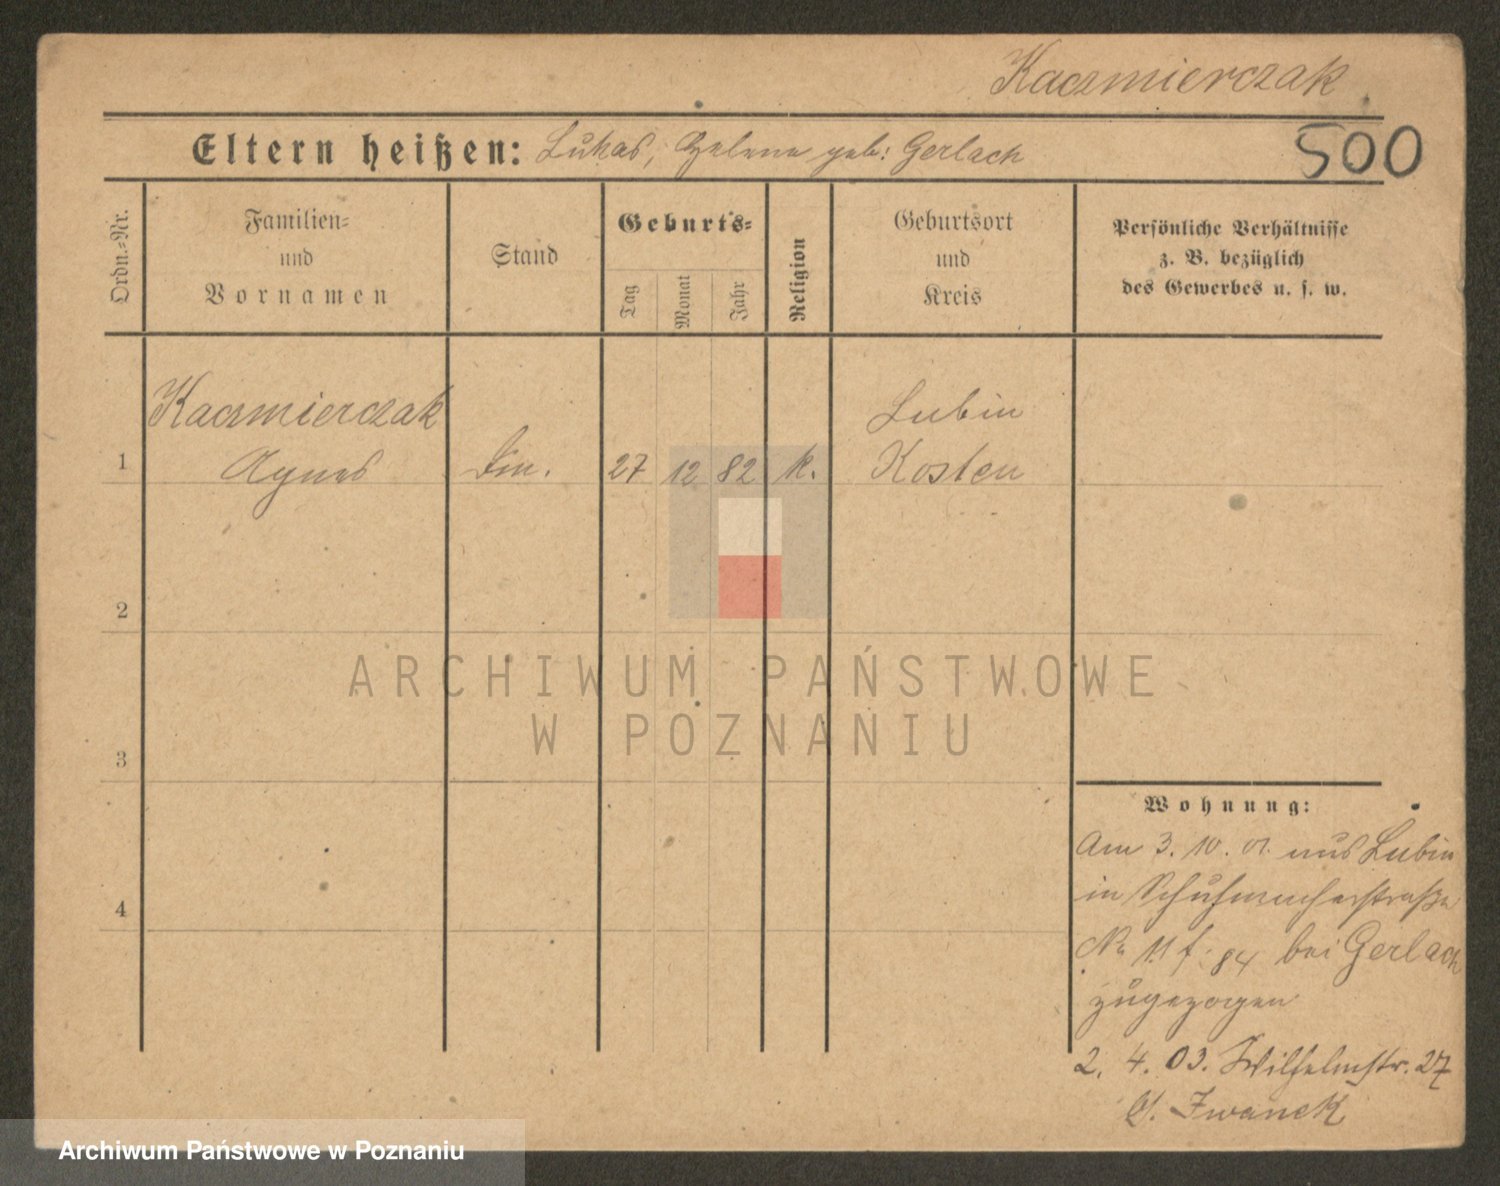 Kaczmierczak
Eltern heißen: Lukas, Helene geb: Gerlach
500
Ordn.-Nr.
Familien-
und
Vornamen
Stand
Geburts-
Tag
Monat
Jahr
Religion
Geburtsort
und
Kreis
Persönliche Verhältnisse
z. B. bezüglich
des Gewerbes u. s. w.
Kaczmierczak
Lubin
1 Agnes 27 12 82 k. Kosten
2
3
4
ARCHIWUM PAŃSTWOWE
W POZNANIU
Wohnung:
Am 3. 10. 01. aus Lubin
in Schuhmacherstraße
No 11 f. 84 bei Gerlach
zugezogen
2. 4. 03. Wilhelmstr. 27
Iwanek
Archiwum Państwowe w Poznaniu